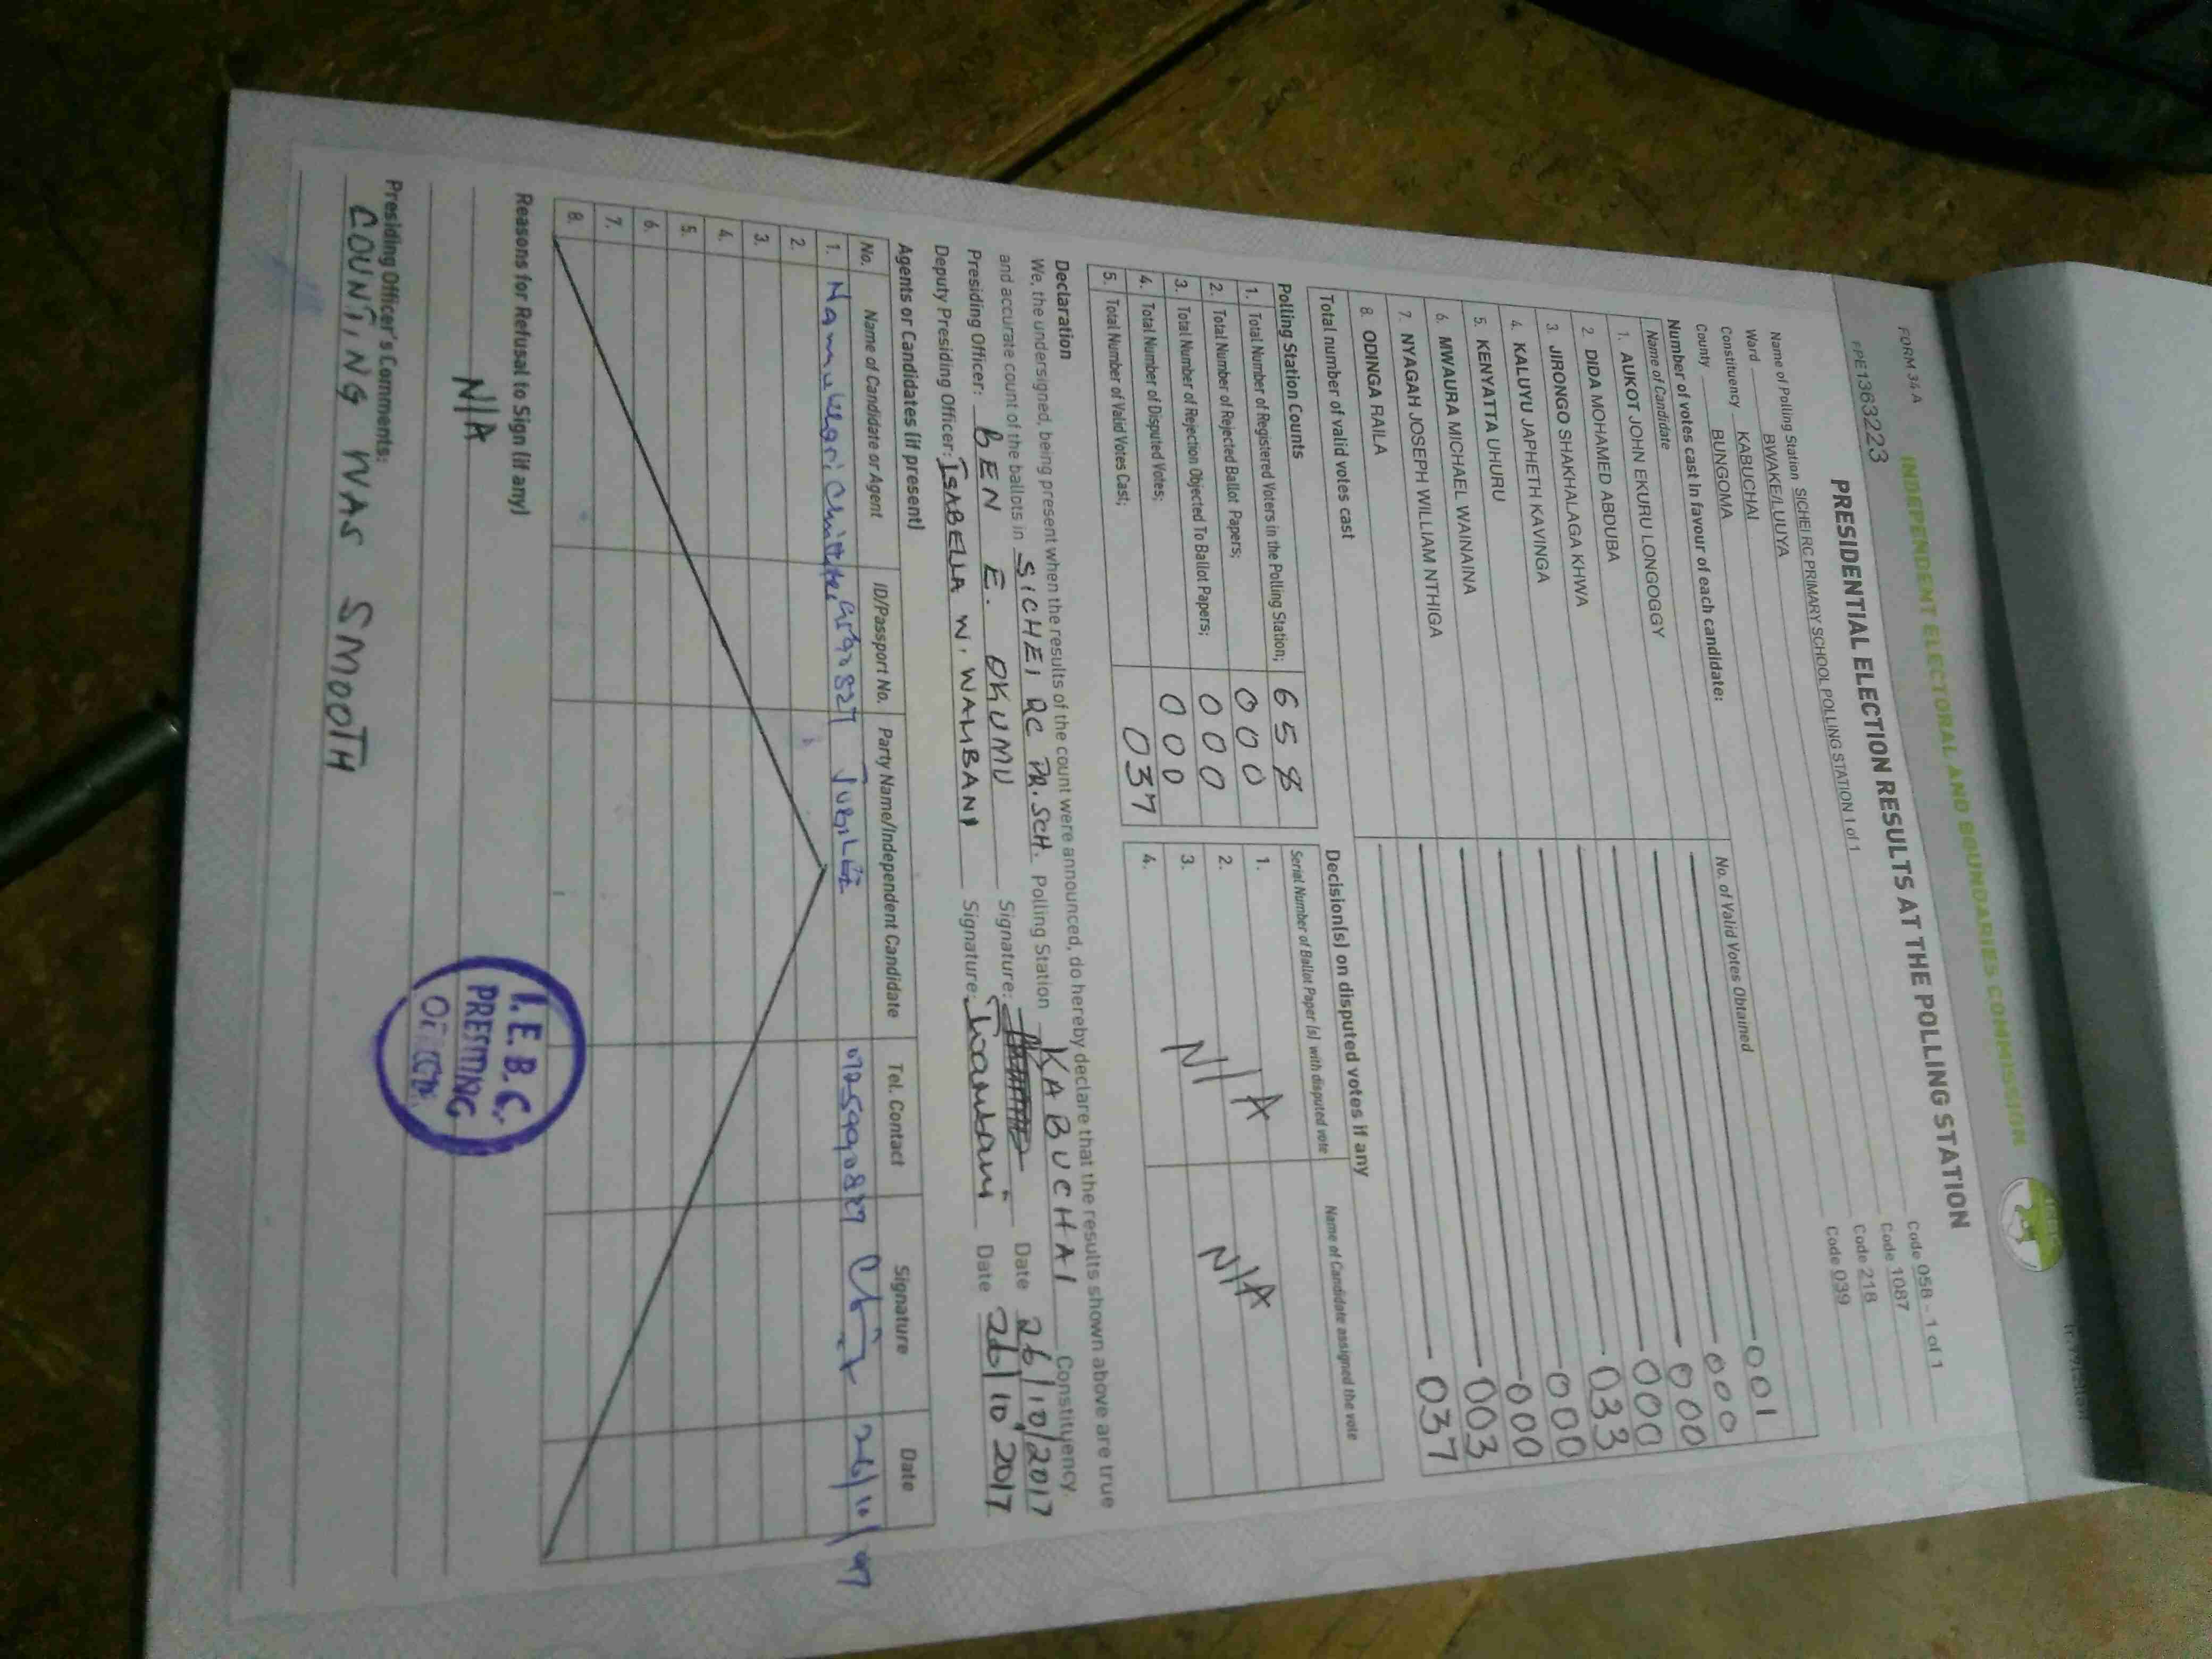 FORM 34A
INDEPENDENT ELECTORAL AND BOUNDARIES COMMISSION
FPE1363223
PRESIDENTIAL ELECTION RESULTS AT THE POLLING STATION
Name of Polling Station SICHEI RC PRIMARY SCHOOL POLLING STATION 1 of 1 Code 058 - 1 of 1
Ward BWAKE/LUUYA Code 1087
Constituency KABUCHAI Code 218
County BUNGOMA Code 039
Number of votes cast in favour of each candidate:
Name of Candidate No. of Valid Votes Obtained
1. AUKOT JOHN EKURU LONGOGGY 001
2. DIDA MOHAMED ABDUBA 000
3. JIRONGO SHAKHALAGA KHWA 000
4. KALUYU JAPHETH KAVINGA 000
5. KENYATTA UHURU 033
6. MWAURA MICHAEL WAINAINA 000
7. NYAGAH JOSEPH WILLIAM NTHIGA 000
8. ODINGA RAILA 003
Total number of valid votes cast 037
Polling Station Counts
1. Total Number of Registered Voters in the Polling Station; 658
2. Total Number of Rejected Ballot Papers; 000
3. Total Number of Rejection Objected To Ballot Papers; 000
4. Total Number of Disputed Votes; 000
5. Total Number of Valid Votes Cast; 037
Decision(s) on disputed votes if any
Serial Number of Ballot Paper (s) with disputed vote Name of Candidate assigned the vote
1.
2.
3.
4.
N/A N/A
Declaration
We, the undersigned, being present when the results of the count were announced, do hereby declare that the results shown above are true
and accurate count of the ballots in SICHEI RC PR. SCH. Polling Station KABUCHAI Constituency.
Presiding Officer: BEN E. OKUMU Signature: Date 26/10/2017
Deputy Presiding Officer: ISABELLA W. WAMBANI Signature: Date 26/10 2017
Agents or Candidates (if present)
No. Name of Candidate or Agent ID/Passport No. Party Name/Independent Candidate Tel. Contact Signature Date
1. JUBILEE
2.
3.
4.
5.
6.
7.
8.
Reasons for Refusal to Sign (if any)
N/A
I.E.B.C.
PRESIDING
OFFICER
Presiding Officer's Comments:
COUNTING WAS SMOOTH